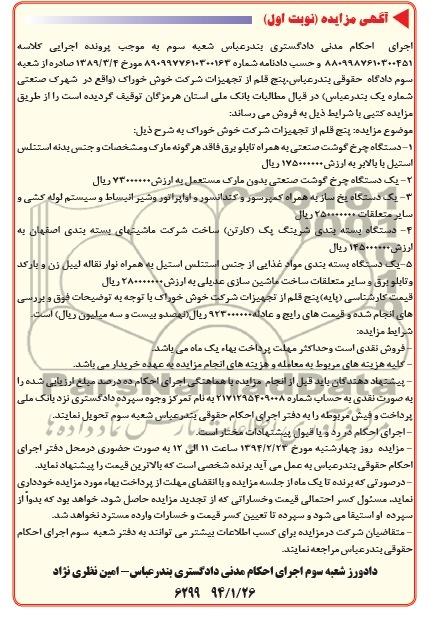 آگهی مزایده (نوبت اول)
اجرای احکام مدنی دادگستری بندرعباس شعبه سوم به موجب پرونده اجرایی کلاسه
۸۸۰۹۹۸۷۶۱۰۳۰۰۴۵۱ و حسب دادنامه شماره ۸۹۰۹۹۷۷۶۱۰۳۰۰۱۶۳ مورخ ۱۳۸۹/۳/۴ صادره از شعبه
سوم دادگاه حقوقی بندرعباس،پنج قلم از تجهیزات شرکت خوش خوراک (واقع در شهرک صنعتی
شماره یک بندرعباس) در قبال مطالبات بانک ملی استان هرمزگان توقیف گردیده است را از طریق
مزایده کتبی با شرایط ذیل به فروش می رساند:
موضوع مزایده: پنج قلم از تجهیزات شرکت خوش خوراک به شرح ذیل:
۱-دستگاه چرخ گوشت صنعتی به همراه تابلو برق فاقد هر گونه مارک ومشخصات و جنس بدنه استنلس
استیل با بالابر به ارزش۱۷۵۰۰۰۰۰۰ ریال
۲- یک دستگاه چرخ گوشت صنعتی بدون مارک مستعمل به ارزش۷۳۰۰۰۰۰۰ ریال
۳- یک دستگاه یخ ساز به همراه کمپرسور و کندانسور و اواپراتور وشیر انبساط و سیستم لوله کشی و
سایر متعلقات ۲۵۰۰۰۰۰۰۰ ریال
۴- دستگاه بسته بندی شرینگ پک (کارتن) ساخت شرکت ماشینهای بسته بندی اصفهان به
ارزش۱۴۵۰۰۰۰۰۰ ریال
۵-یک دستگاه بسته بندی مواد غذایی از جنس استنلس استیل به همراه نوار نقاله لیبل زن و بارکد
وتابلو برق و سایر متعلقات ساخت ماشین سازی عدیلی به ارزش۲۸۰۰۰۰۰۰۰ ریال
قیمت کارشناسی (پایه)پنج قلم از تجهیزات شرکت خوش خوراک با توجه به توضیحات فوق و بررسی
های انجام شده و قیمت های رایج و عادله۹۲۳۰۰۰۰۰۰ ریال(نهصدو بیست و سه میلیون ریال) است.
شرایط مزایده:
- فروش نقدی است وحداکثر مهلت پرداخت بهاء یک ماه می باشد.
- کلیه هزینه های مربوط به معامله و هزینه های انجام مزایده به عهده خریدار می باشد.
- پیشنهاد دهندگان باید قبل از انجام مزایده با هماهنگی اجرای احکام ده درصد مبلغ ارزیابی شده را
به صورت نقدی به حساب شماره ۲۱۷۱۲۹۵۴۰۹۰۰۸ به نام تمرکز وجوه سپرده دادگستری نزد بانک ملی
پرداخت و فیش مربوطه را به دفتر اجرای احکام حقوقی بندرعباس شعبه سوم تحویل نمایند.
- اجرای احکام در رد و یا قبول پیشنهادات مختار است.
- مزایده روز چهارشنبه مورخ ۱۳۹۴/۲/۲۳ ساعت ۱۱ الی ۱۲ به صورت حضوری درمحل دفتر اجرای
احکام حقوقی بندرعباس به عمل می آید برنده شخصی است که بالاترین قیمت را پیشنهاد نماید.
- درصورتی که برنده تا یک ماه از جلسه مزایده و با انقضای مهلت از پرداخت بهاء مورد مزایده خودداری
نماید، مسئول کسر احتمالی قیمت وخساراتی که از تجدید مزایده حاصل شود، خواهد بود که بدواً از
سپرده او استیفا می شود و سپرده تا تعیین کسر قیمت و خسارات وارده مسترد نخواهد شد.
- متقاضیان شرکت درمزایده برای کسب اطلاعات بیشتر می توانند به دفتر شعبه سوم اجرای احکام
حقوقی بندرعباس مراجعه نمایند.
دادورز شعبه سوم اجرای احکام مدنی دادگستری بندرعباس- امین نظری نژاد
۹۴/۱/۲۶ ۶۲۹۹